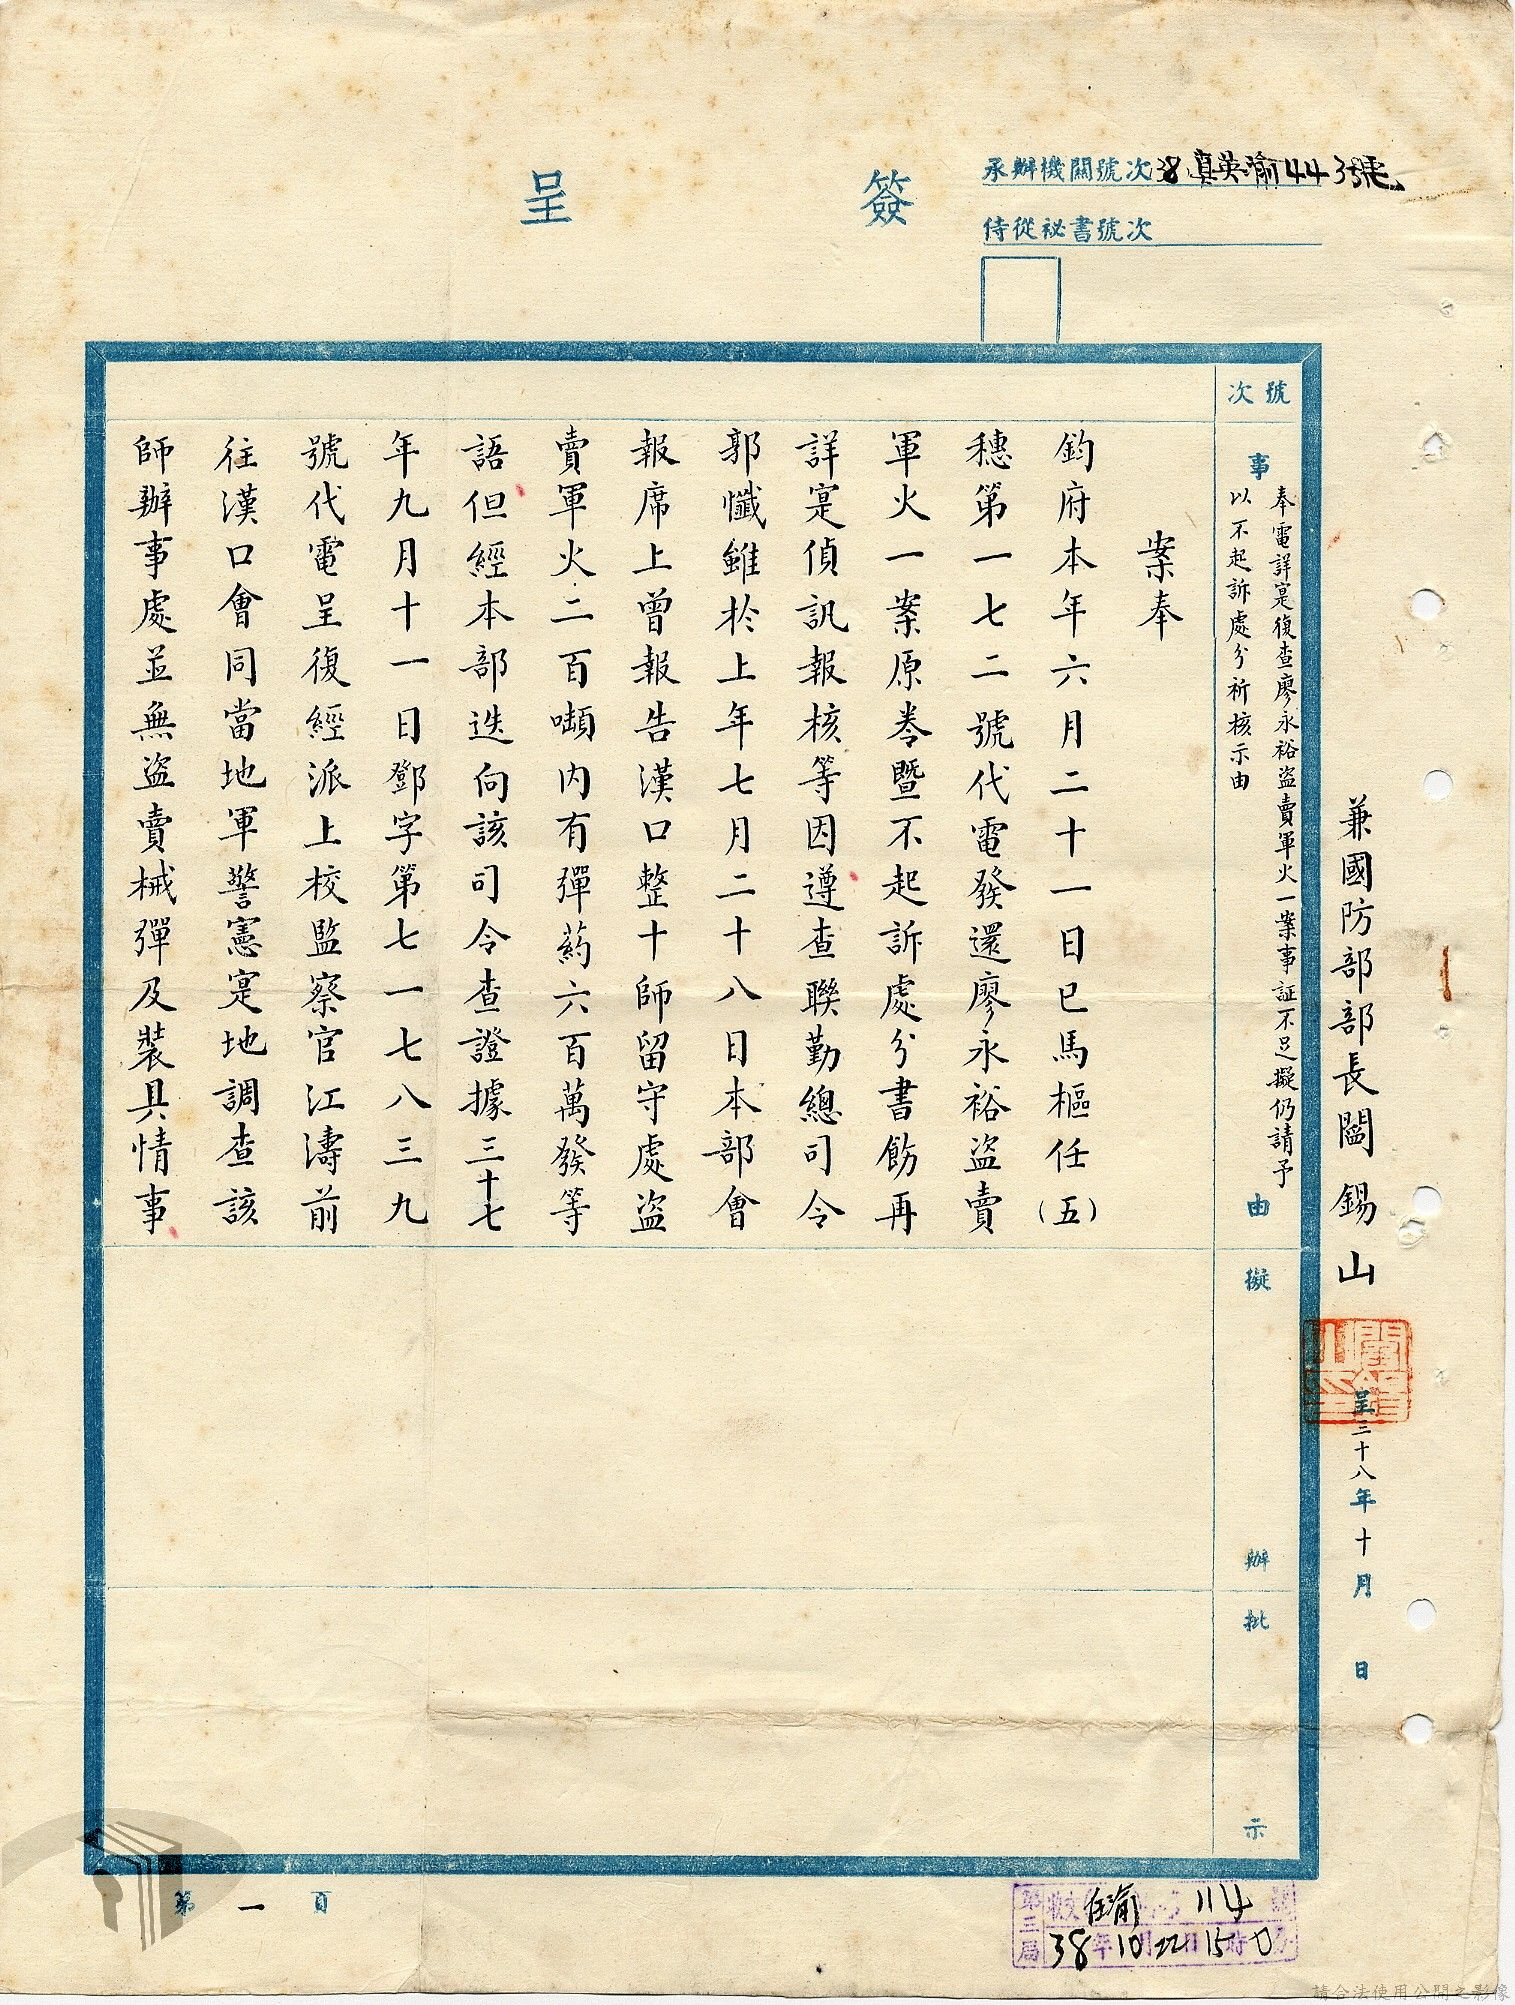 簽呈
承辦機關號次38真英渝443號
侍從祕書號次
兼國防部部長閻錫山
呈三十八年十月 日
號次
事由
奉電詳寔復查廖永裕盜賣軍火一案事証不足擬仍請予
以不起訴處分祈核示由
擬辦
批示
案奉
鈞府本年六月二十一日巳馬樞任(五)
穗第一七二號代電發還廖永裕盜賣
軍火一案原卷暨不起訴處分書飭再
詳寔偵訊報核等因遵查聯勤總司令
郭懺雖於上年七月二十八日本部會
報席上曾報告漢口整十師留守處盜
賣軍火二百噸內有彈葯六百萬發等
語但經本部迭向該司令查證據三十七
年九月十一日鄧字第七一七八三九
號代電呈復經派上校監察官江濤前
往漢口會同當地軍警憲寔地調查該
師辦事處並無盜賣械彈及裝具情事
第一頁
第三局
收文 任渝 114 號
38年10月22日15時0分
請合法使用公開之影像